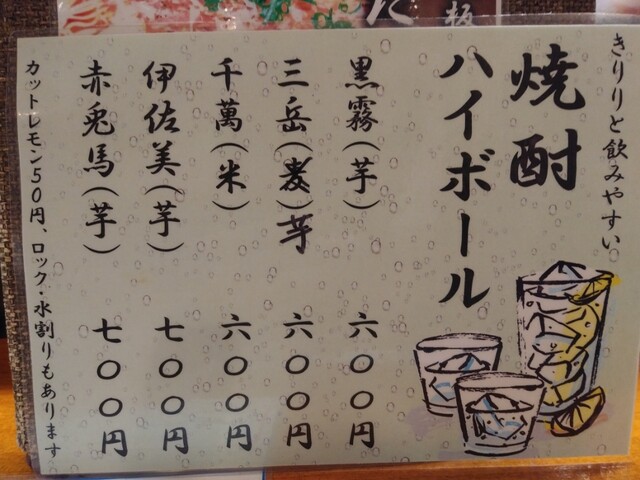 た
板
きりりと飲みやすい
焼酎
ハイボール
黒霧(芋) 六〇〇円
三岳(麦)芋 六〇〇円
千萬(米) 六〇〇円
伊佐美(芋) 七〇〇円
赤兎馬(芋) 七〇〇円
カットレモン50円、ロック・水割りもあります